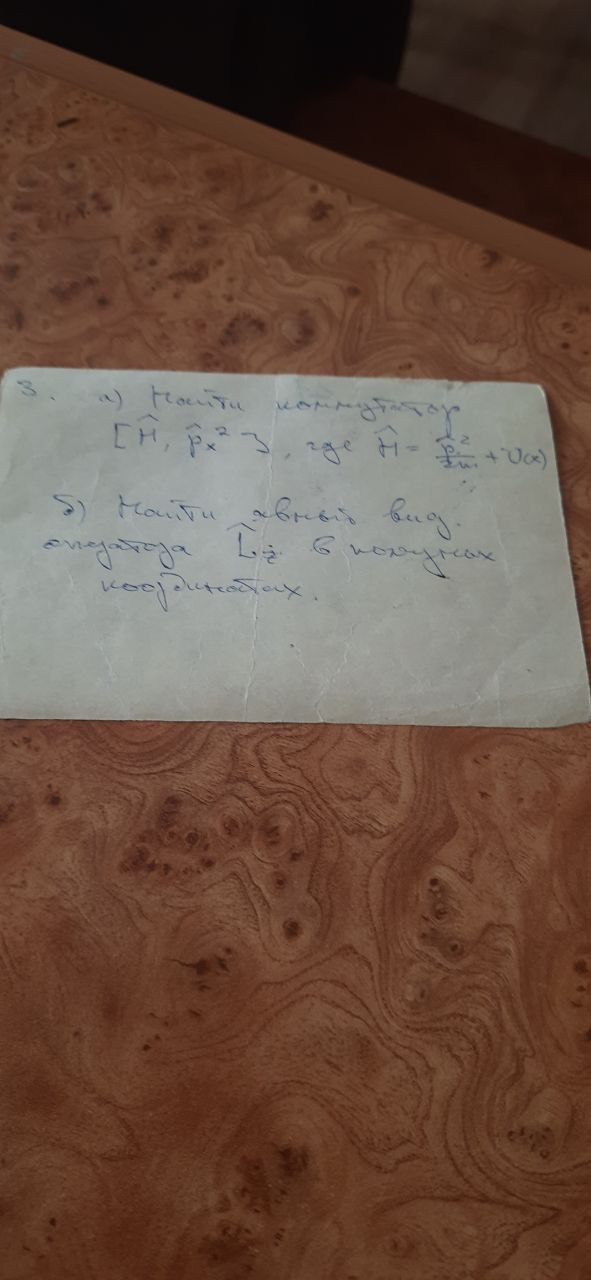 3. а) Найти коммутатор
[Ĥ, p̂ₓ²], где Ĥ = p̂²/2m + U(x)
б) Найти явный вид
оператора L̂z в полярных
координатах.